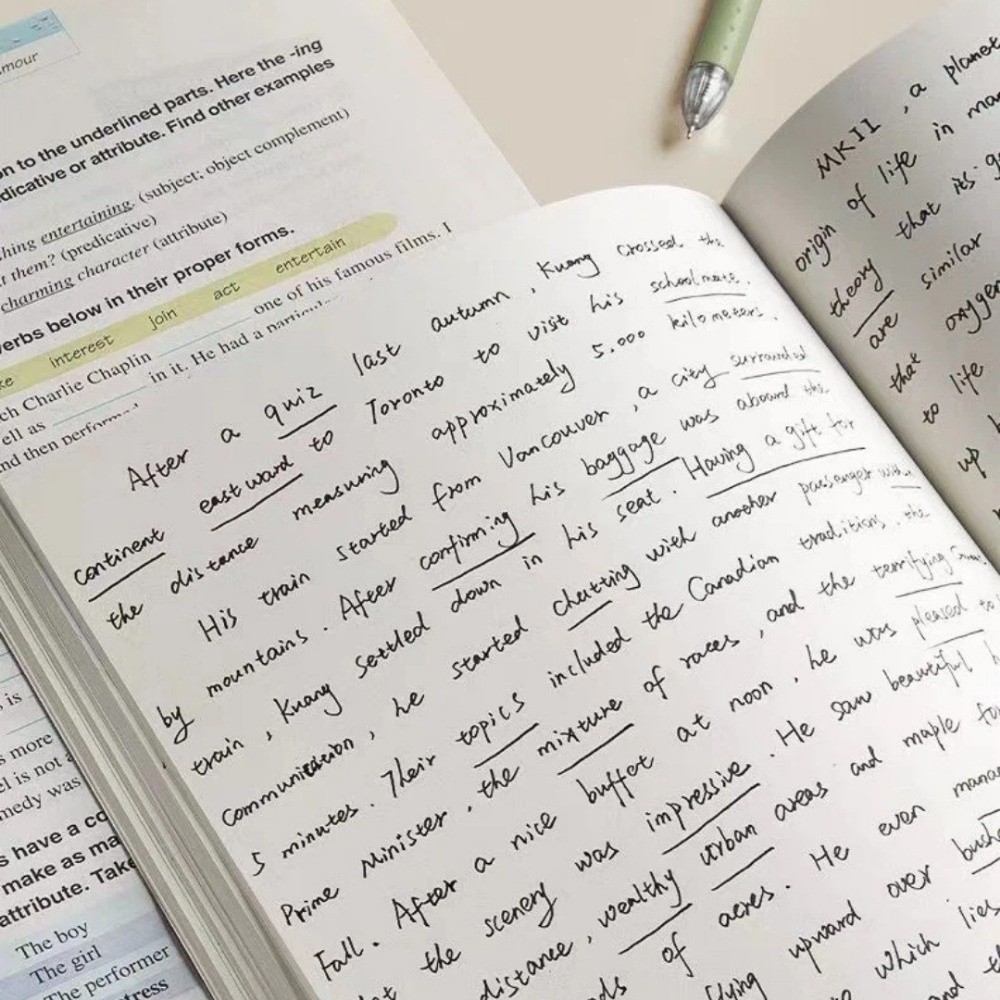 mour
on to the underlined parts. Here the -ing
dicative or attribute. Find other examples
hing entertaining. (subject; object complement)
t them? (predicative)
charming character (attribute)
erbs below in their proper forms.
ke interest join act entertain
ch Charlie Chaplin one of his famous films. I
ell as in it. He had a
nd then perform
is
s more
el is not a
medy was
s have a co
make as ma
attribute. Take
The boy
The girl
The performer
tress
After a quiz last autumn, Kuang crossed the
continent eastward to Toronto to visit his schoolmate.
the distance measuring approximately 5,000 kilometers.
His train started from Vancouver, a city surrounded
by mountains. After confirming his baggage was aboard the
train, Kuang settled down in his seat. Having a gift for
communication, he started chatting with another passenger within
5 minutes. Their topics included the Canadian traditions, the
Prime Minister, the mixture of races, and the terrifying
Fall. After a nice buffet at noon, he was pleased to
the scenery was impressive. He saw beautiful
distance, wealthy urban areas and maple
of acres. He even manag
upward over bush
which lies
and
MKII, a planet
origin of life in ma
theory that its g
are similar
that oxygen
to life
up